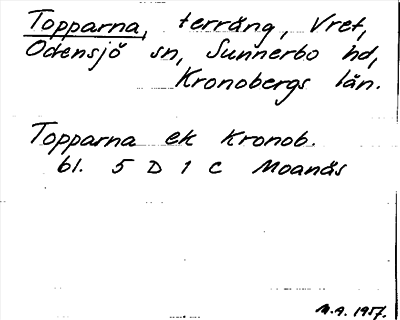 Topparna, terräng, Vret,
Odensjö sn, Sunnerbo hd,
Kronobergs län.
Topparna ek Kronob.
bl. 5 D 1 c Moanäs
M.A. 1957.